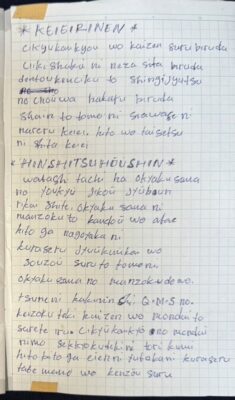 * KEIEIRINEN *
Cikyūkankyou wo kaizen suru biruda
Ciiki shakai ni neza shita biruda
dentoukenciku to shingijyutsu
no chouwa hakaru biruda
shain to tomo ni siawase ni
nareru keiei, hito wo taisetsu
ni shita keiei
* HINSHITSUHOUSHIN *
watashi tachi ha okyaku sama
no youkyū jikou jyūbun
rikai shite, okyaku sama ni
manzoku to kandou wo atae
hito ga nagoyaka ni
kuraseru jyūkankai wo
souzou suru to tomoni
okyaku sama no manzokudowo
tsuneni kakunin shi Q.M.S no
keizoku teki kaizen wo
Cikyūkankyō no mondai
nimo sekkyokuteki ni tori kumi
hito bito ga eien ni yutakani kuraseru
tatemono wo kenzou suru